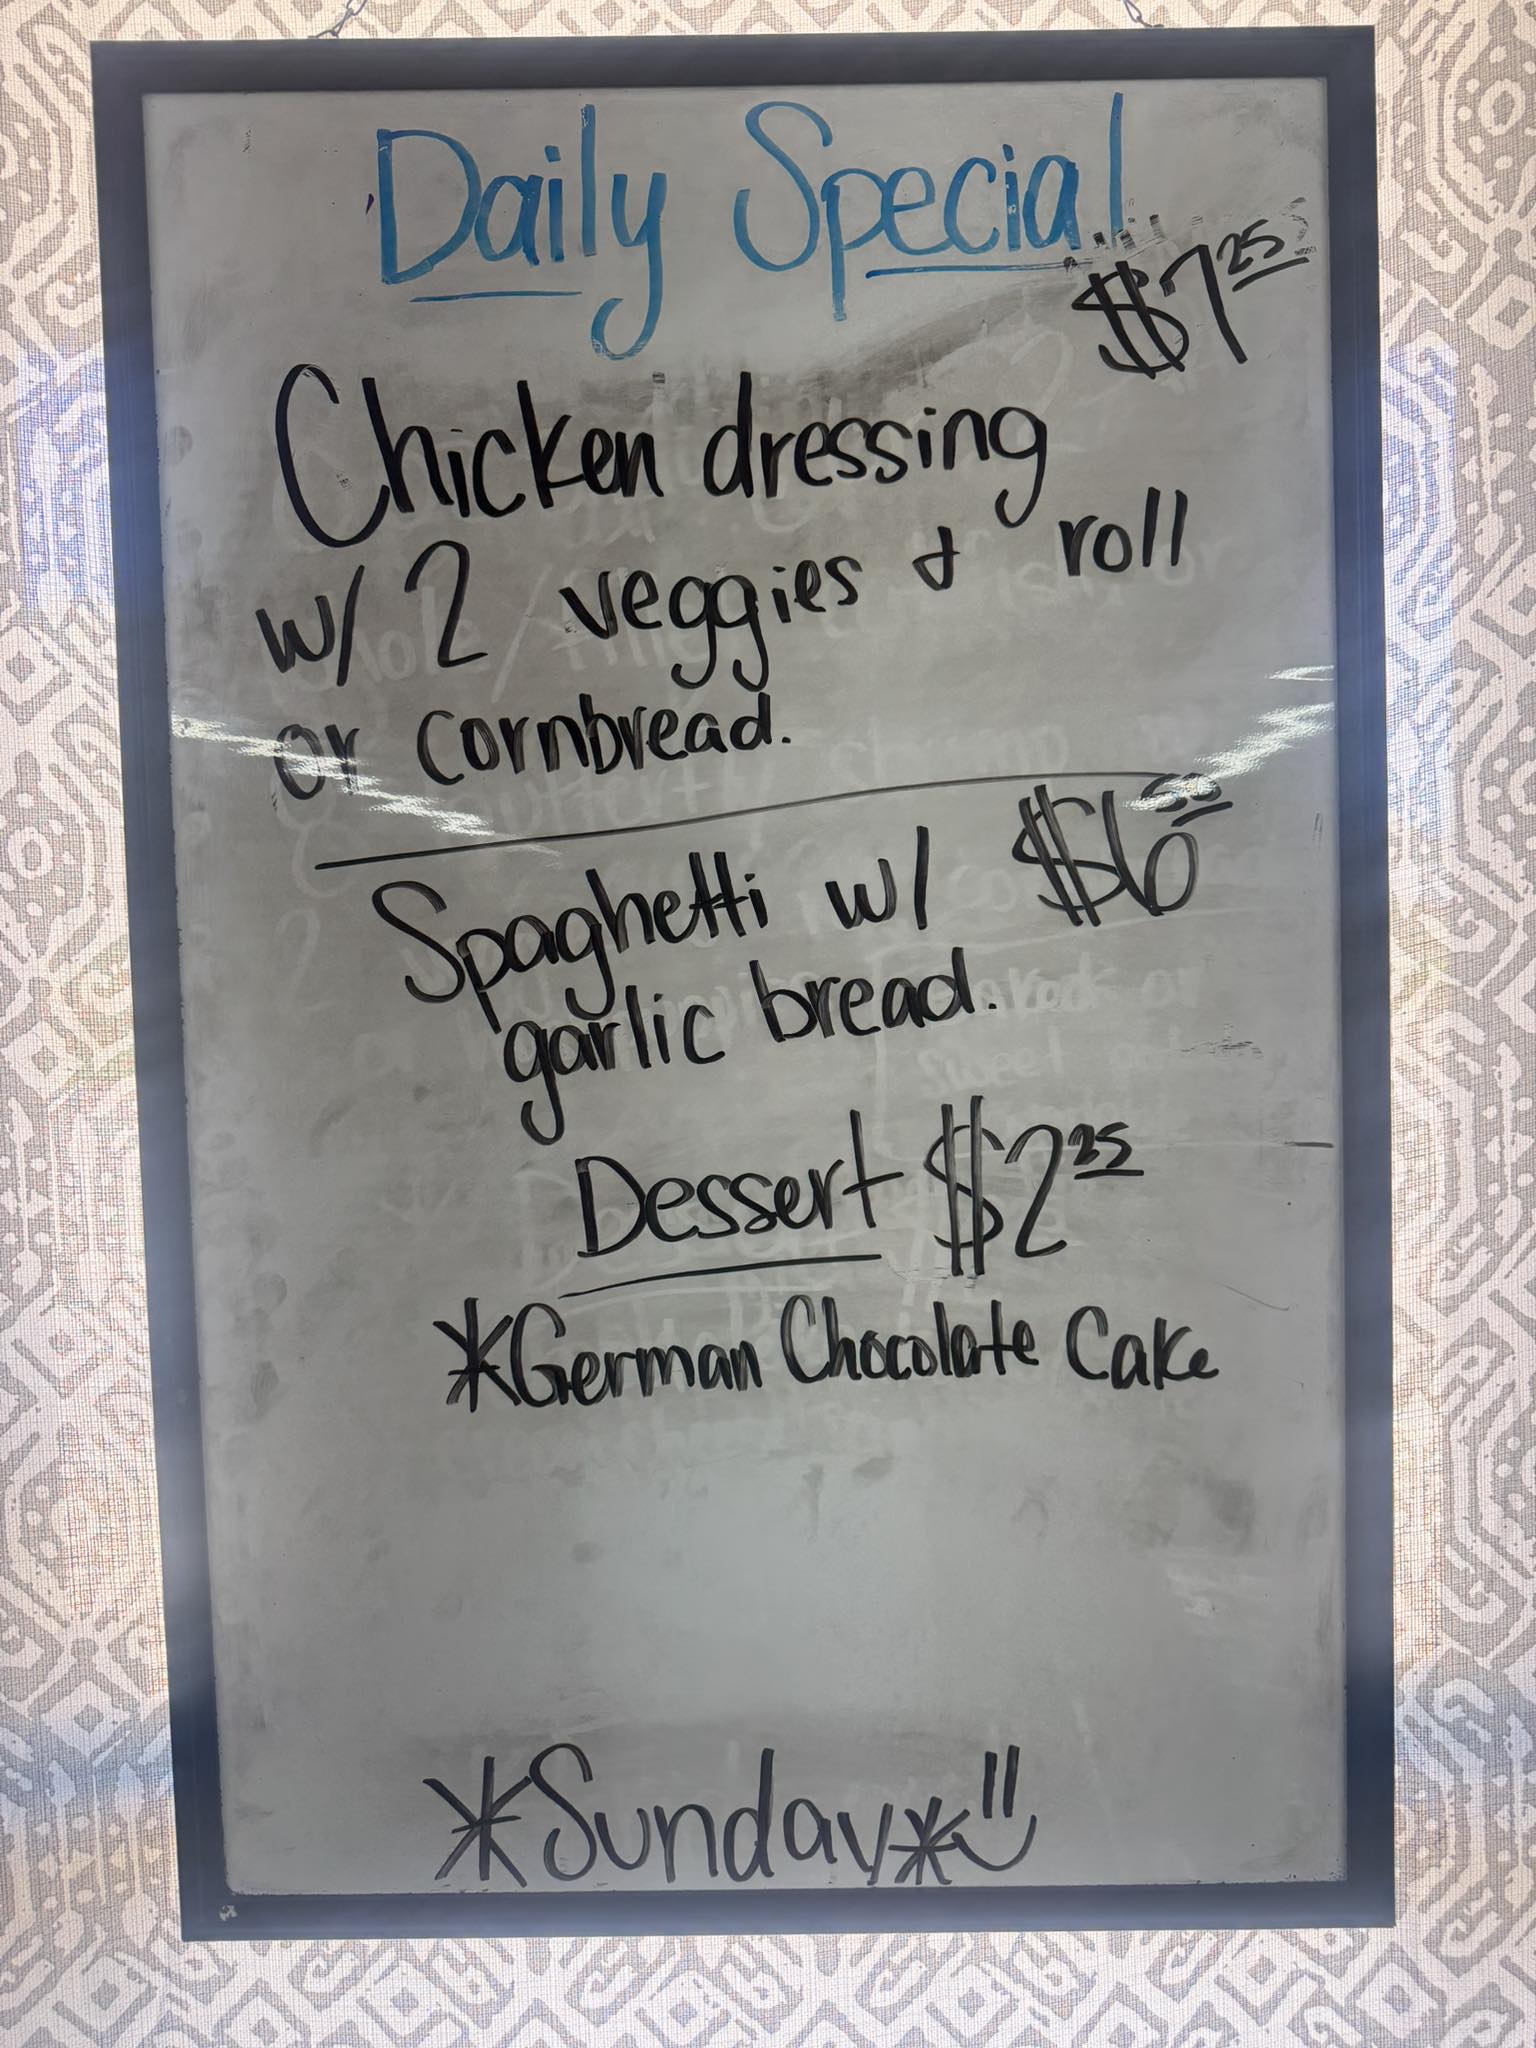 Daily Special
$7.25
Chicken dressing
w/ 2 veggies & roll
or cornbread.
Spaghetti w/ $6.50
garlic bread.
Dessert $2.25
*German Chocolate Cake
*Sunday*